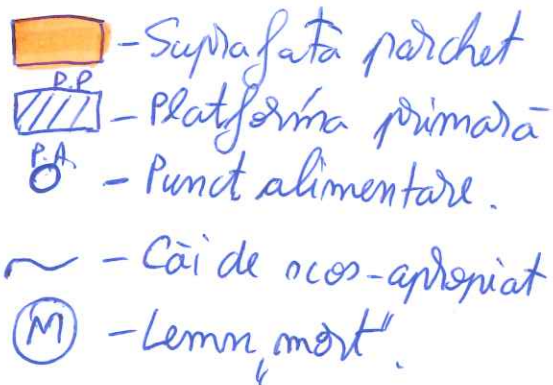 - Suprafată parchet
P.P
- Platforma primară
P.A
- Punct alimentare.
- Căi de scos-apropiat
M - Lemn „mort".